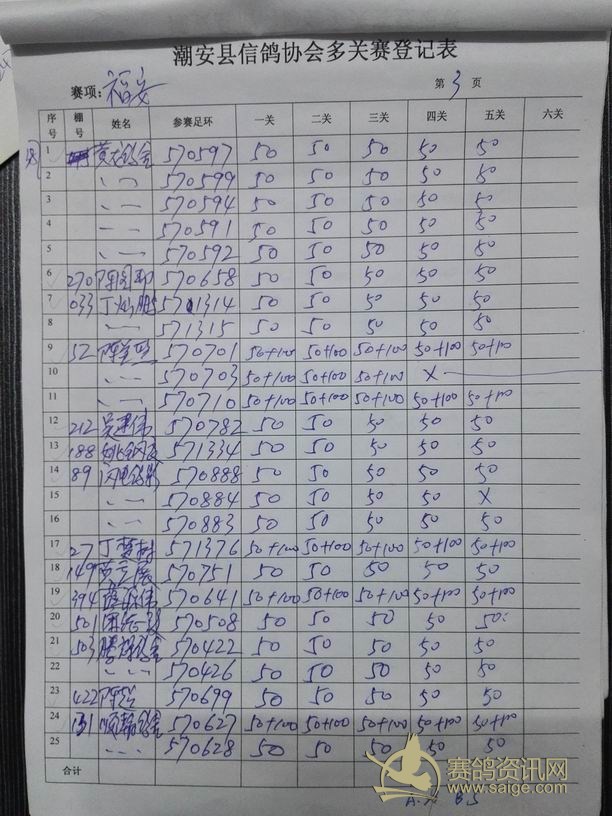 潮安县信鸽协会多关赛登记表
赛项: 福安 第 3 页
序号 棚号 姓名 参赛足环 一关 二关 三关 四关 五关 六关
1 570597 50 50 50 50 50
2 570599 50 50 50 50 50
3 570594 50 50 50 50 50
4 570591 50 50 50 50 50
5 570592 50 50 50 50 50
6 270 570658 50 50 50 50 50
7 033 丁灿鹏 571314 50 50 50 50 50
8 571315 50 50 50 50 50
9 52 570701 50+100 50+100 50+100 50+100 50+100
10 570703 50+100 50+100 50+100 X
11 570710 50+100 50+100 50+100 50+100 50+100
12 212 570782 50 50 50 50 50
13 188 571334 50 50 50 50 50
14 89 570888 50 50 50 50 50
15 570884 50 50 50 50 X
16 570883 50 50 50 50 50
17 27 571376 50+100 50+100 50+100 50+100 50+100
18 149 570751 50 50 50 50 50
19 394 570641 50+100 50+100 50+100 50+100 50+100
20 501 570508 50 50 50 50 50
21 503 570422 50 50 50 50 50
22 570426 50 50 50 50 50
23 422 570699 50 50 50 50 50
24 131 570627 50+100 50+100 50+100 50+100 50+100
25 570628 50 50 50 50 50
合计
赛鸽资讯网
www.saige.com